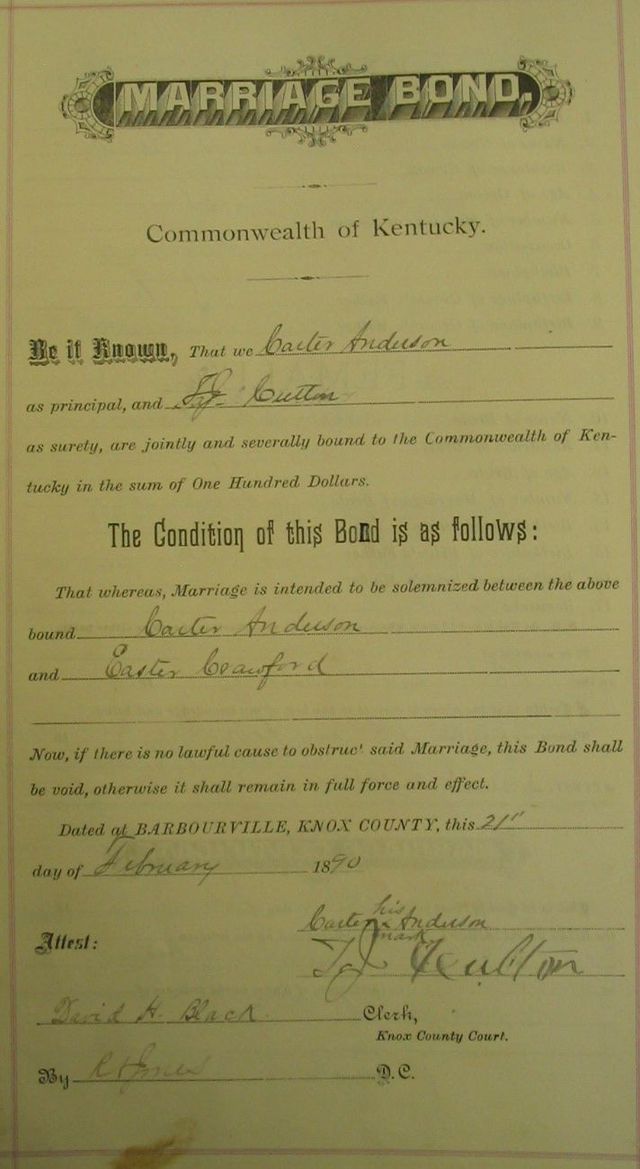 MARRIAGE BOND.
Commonwealth of Kentucky.
Be it Known, That we Carter Anderson
as principal, and
as surety, are jointly and severally bound to the Commonwealth of Ken-
tucky in the sum of One Hundred Dollars.
The Condition of this Bond is as follows:
That whereas, Marriage is intended to be solemnized between the above
bound Carter Anderson
and Easter Crawford
Now, if there is no lawful cause to obstruct said Marriage, this Bond shall
be void, otherwise it shall remain in full force and effect.
Dated at BARBOURVILLE, KNOX COUNTY, this 21"
day of February 1890
his
Carter Anderson
mark
Attest:
David H. Black Clerk,
Knox County Court.
By Jones D.C.